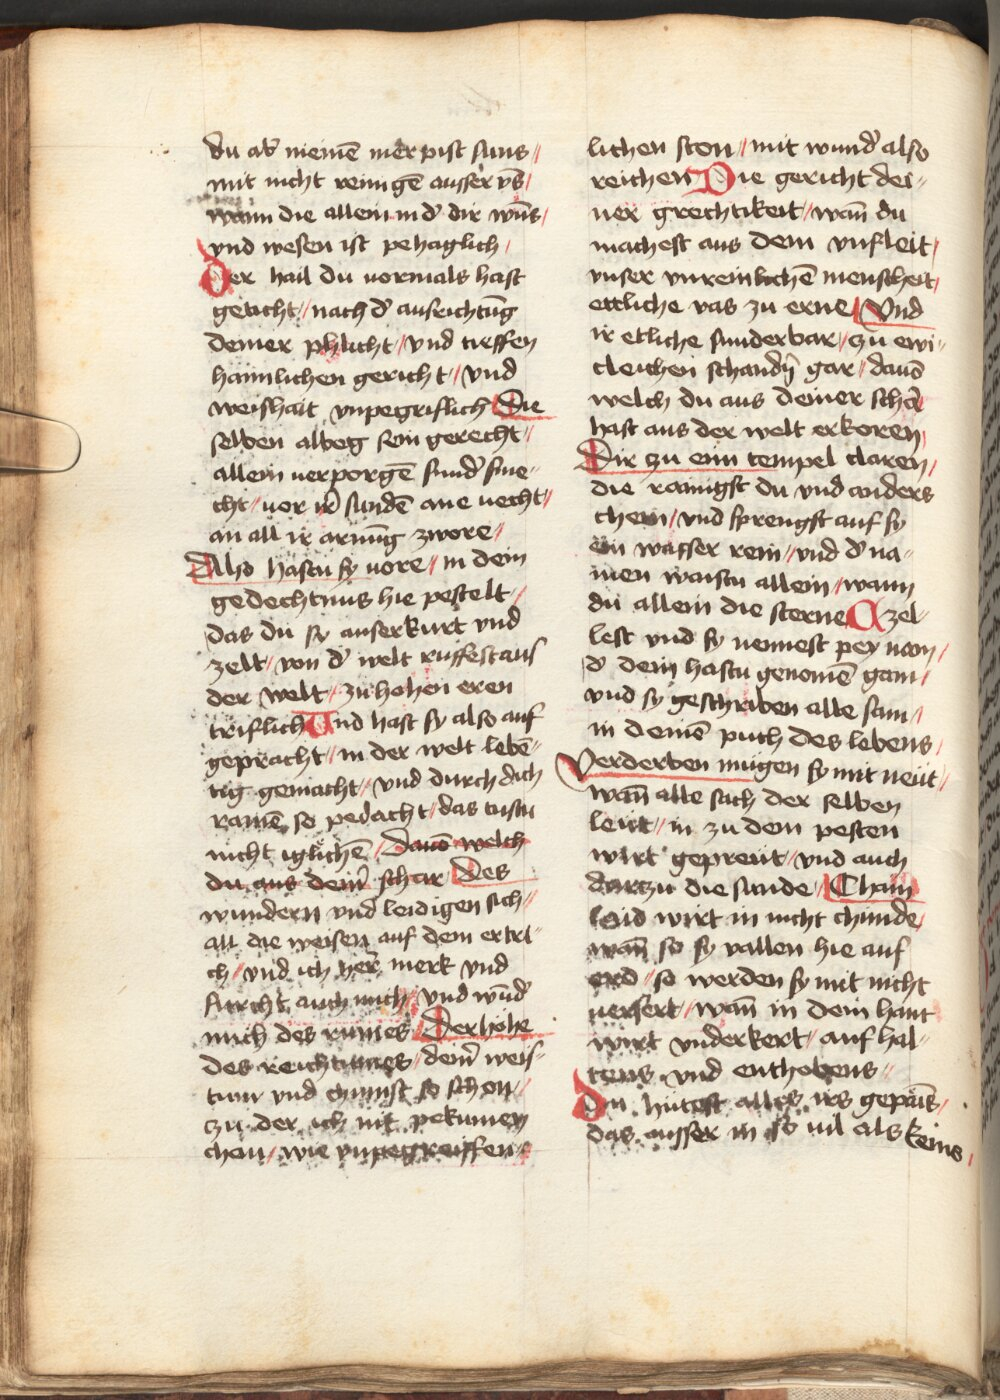 du ab̃ niemẽ mer pist suns //
mit nicht reinigẽ ausser vs̃ /
wann die allein in d̾ dir wũs /
vnd wesen ist pehaglich /
Der hail du vormals hast
geticht // nach d̾ ausrichtũg
deiner phlicht // vnd treffen
haimlichen gericht // vnd
weishait vnpegriflich Die
selben albeg sein gerecht //
allein verporgẽ sind̾ sme-
cht // vor ir̃ sundẽ ane vecht //
an all ir arnũg zwore //
Also hastu sy vore // in dem
gedechtnus hie pestelt //
das du sy auserkurt vnd
zelt // von d̾ welt ruffest aus
der welt / zu hohen eren
triflich Und hast sy also auf
gepracht // in der welt lebẽ-
tig gemacht // vnd durch dich
ramẽ so pedacht // das tustu
nicht iglichẽ / Dauõ welch
du aus deim̃ schar Des
wundern vnd leidigen sich //
all die weisen auf dem ertri-
ch // vnd ich her̃ merk vnd
furcht auch mich // vnd wũd̾
mich des rumes Der höhe
des reichtumes // deim̃ weis-
tum vnd chunst so schon //
zu der ich nit pekumen
chen // wie vnpegreiffen-
lichen sten // mit wund̾ also
reichen Die gericht dei-
ner grechtikeit // wañ du
machest aus dem vnfleit /
vnser vnreinlichẽ menscheit /
ettliche vas zu erne Vnd
ir etliche sunderbar // zu ewi-
cleichen schandñ gar / dauõ
welch du aus deiner schar̃
hast aus der welt erkoren /
Dir zu eim tempel claren /
die raimigst du vnd anders
chein / vnd sprengst auf sy
ein wasser rein // vnd d̾ na-
men waistu allein / wann
du allein die sterne zel-
lest vnd sy nennest pey nam /
d̾ dein hastu genomẽ gam /
vnd sy geschriben alle sam /
in deinẽ puch des lebens /
Verderben mügen sy mit neüt /
wañ alle sach der selben
leüt // in zu dem pesten
wirt gepreüt // vnd auch
dartzu die sunde Chain
laid wirt in nicht chunde /
wañ so sy vallen hie auf
erd // so werden sy mit nicht
versert // wañ in dein hant
wirt vnderkert // auf hal-
tens vnd enthobens //
Du hütest alles irs gepais̃ /
das ausser in so vil als keins /